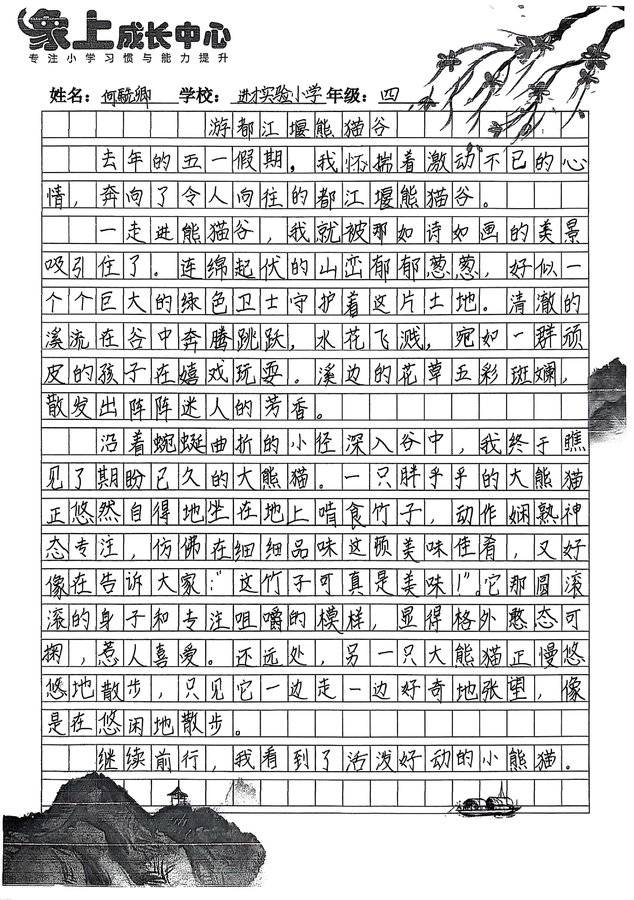 象上成长中心
专注小学习惯与能力提升
姓名：何毓卿 学校：进才实验小学 年级：四
游都江堰熊猫谷
去年的五一假期，我怀揣着激动不已的心
情，奔向了令人向往的都江堰熊猫谷。
一走进熊猫谷，我就被那如诗如画的美景
吸引住了。连绵起伏的山峦郁郁葱葱，好似一
个个巨大的绿色卫士守护着这片土地。清澈的
溪流在谷中奔腾跳跃，水花飞溅，宛如一群顽
皮的孩子在嬉戏玩耍。溪边的花草五彩斑斓，
散发出阵阵迷人的芳香。
沿着蜿蜒曲折的小径深入谷中，我终于瞧
见了期盼已久的大熊猫。一只胖乎乎的大熊猫
正悠然自得地坐在地上啃食竹子，动作娴熟神
态专注，仿佛在细细品味这顿美味佳肴，又好
像在告诉大家："这竹子可真是美味！"它那圆滚
滚的身子和专注咀嚼的模样，显得格外憨态可
掬，惹人喜爱。还远处，另一只大熊猫正慢悠
悠地散步，只见它一边走一边好奇地张望，像
是在悠闲地散步。
继续前行，我看到了活泼好动的小熊猫。